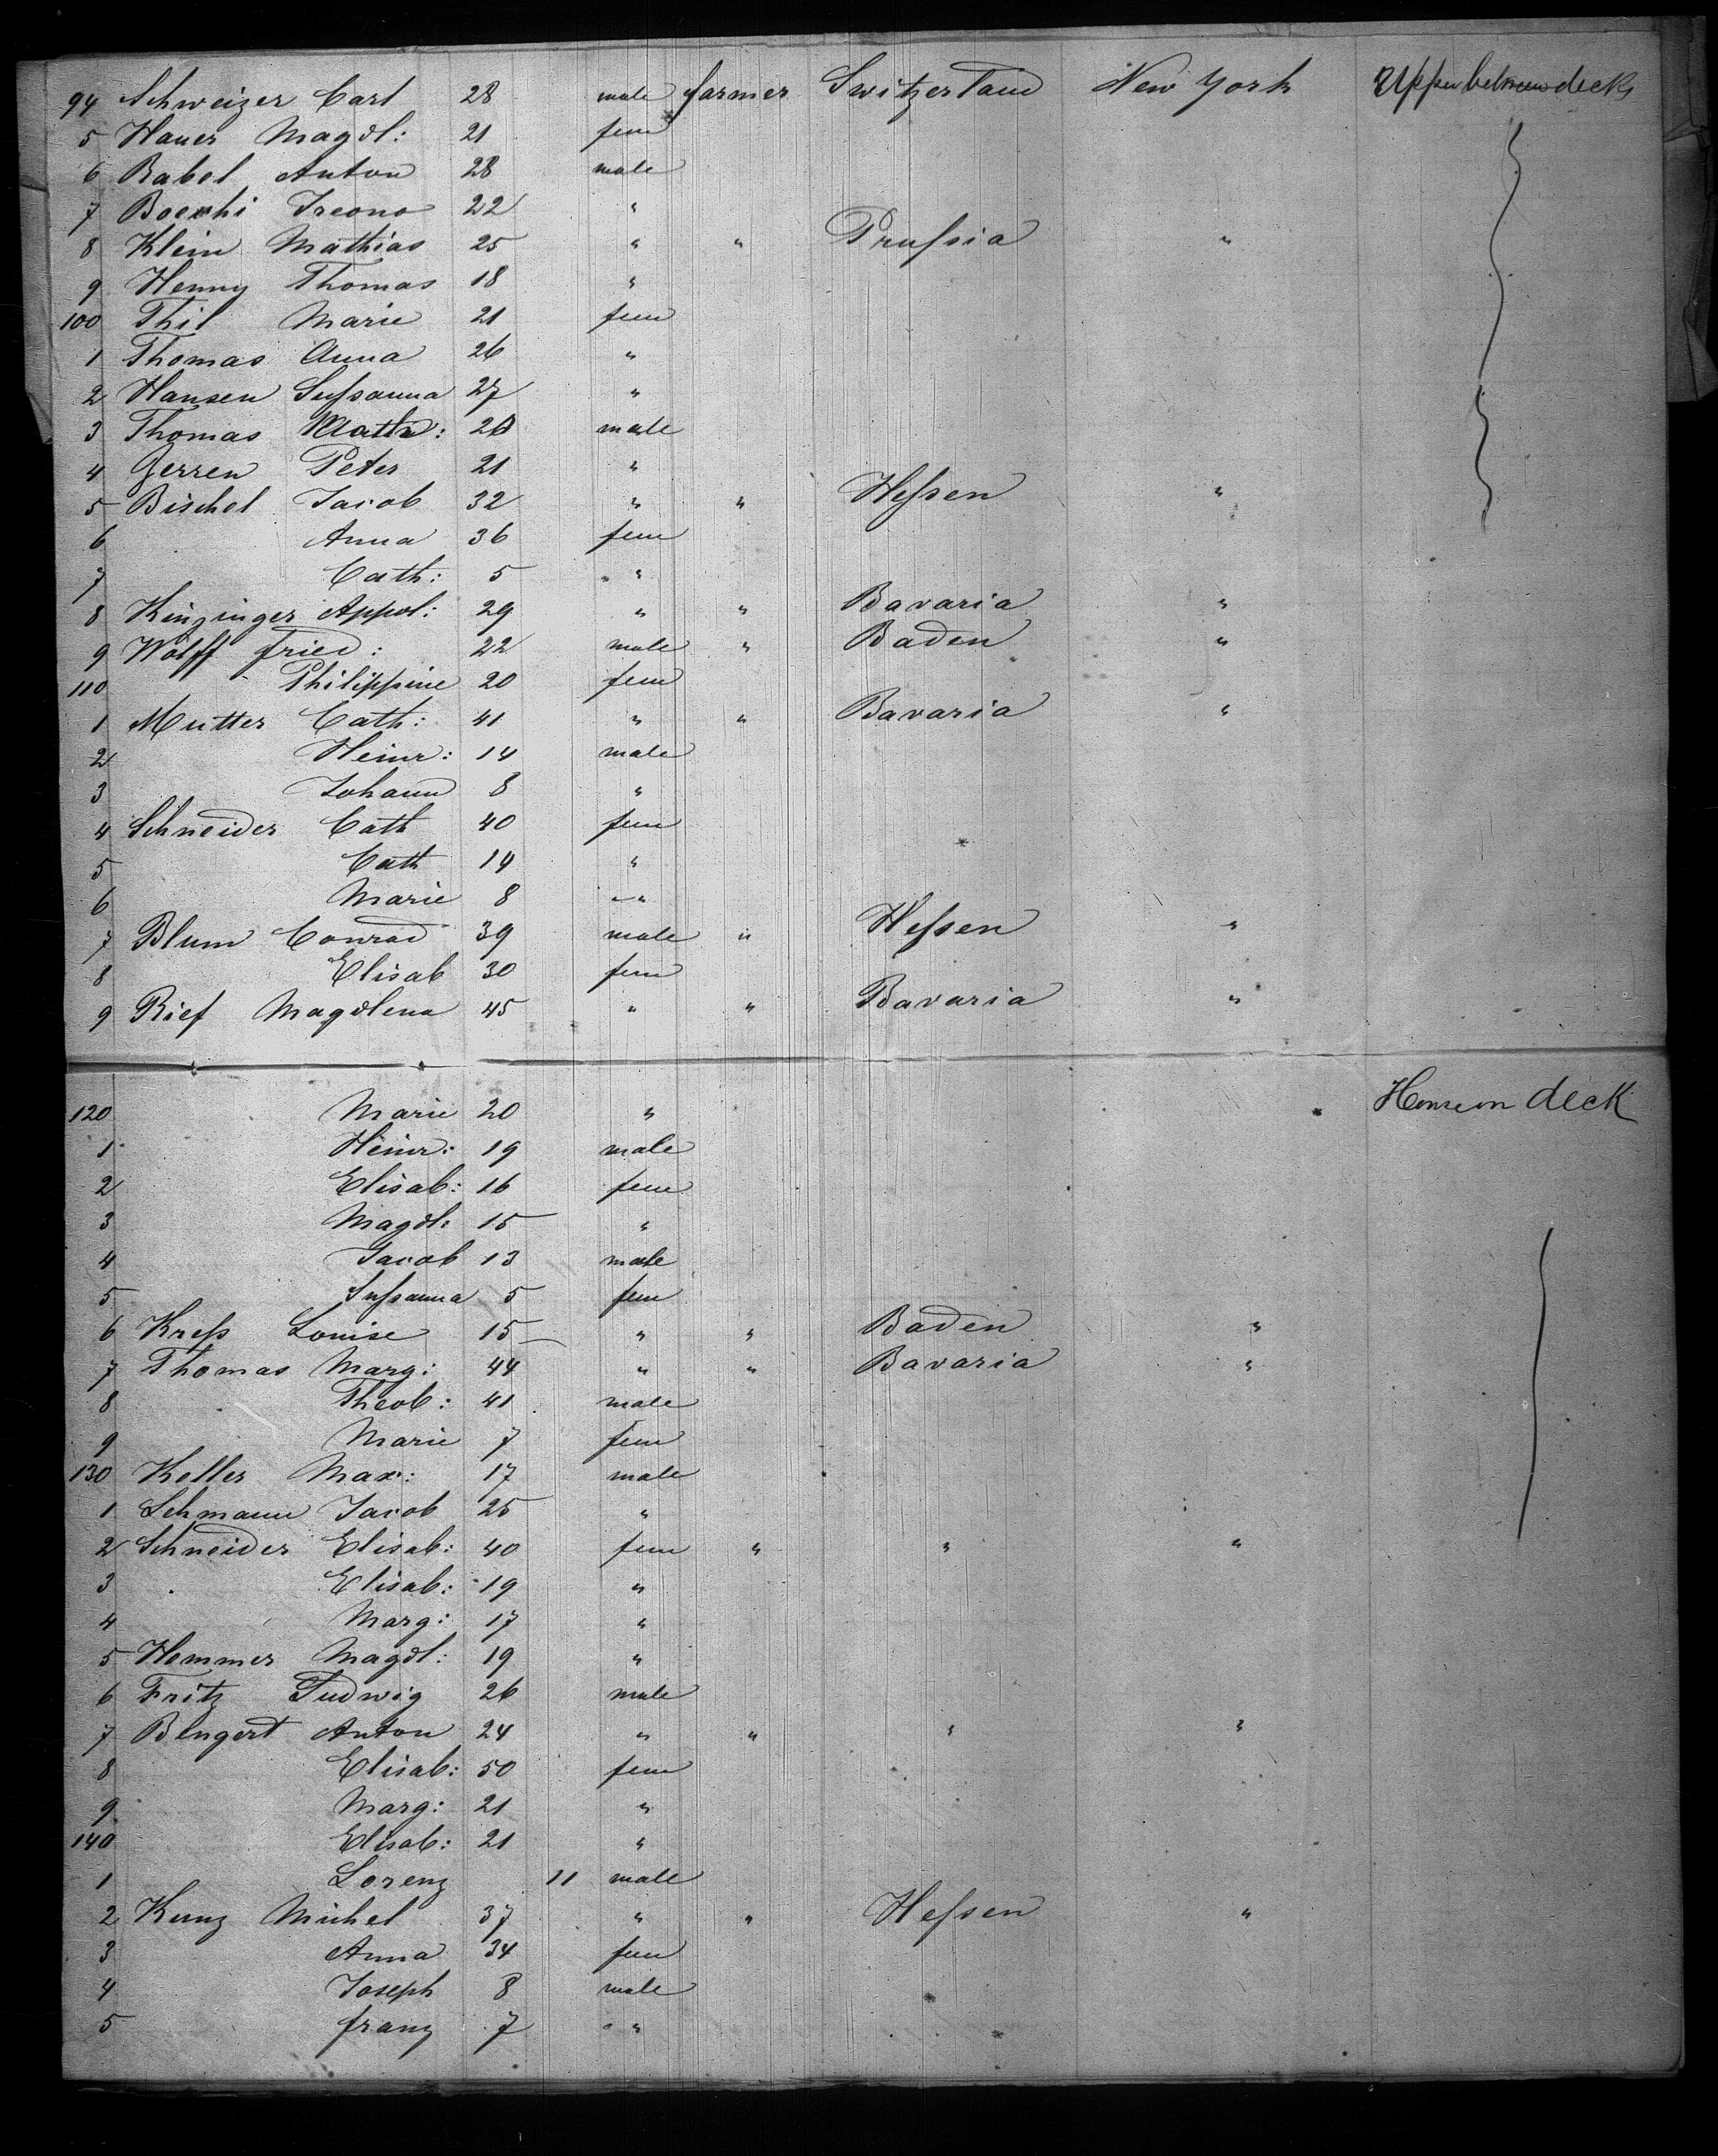 94 Schweizer Carl 28 male farmer Switzerland New York Upper between decks
5 Hauer Magdl: 21 fem
6 Babel Anton 28 male
7 22 "
8 Klein Mathias 25 " " Prußia "
9 Henny Thomas 18 "
100 Thil Marie 21 fem
1 Thomas Anna 26 "
2 Hansen Sußanna 27 "
3 Thomas Math: male
4 Gerren Peter 21 "
5 Bischel Jacob 32 " " Heßen "
6 Anna 36 fem
7 Cath: 5 "
8 Kinzinger Appol: 29 " " Bavaria "
9 Wolff fried: 22 male " Baden "
110 Philippine 20 fem
1 Mutter Cath: 41 " " Bavaria "
2 Heinr: 14 male
3 Johann 8 "
4 Schneider Cath 40 fem
5 Cath 14 "
6 Marie 8 "
7 Blum Conrad 39 male " Heßen "
8 Elisab 30 fem
9 Rief Magdlena 45 " " Bavaria "
120 Marie 20 " deck
1 Heinr: 19 male
2 Elisab: 16 fem
3 Magdl: 15 "
4 Jacob 13 male
5 Sußanna 5 fem
6 Kreß Louise 15 " " Baden "
7 Thomas Marg: 44 " " Bavaria "
8 Theob: 41 male
9 Marie 7 fem
130 Keller Max: 17 male
1 Lehmann Jacob 25 "
2 Schneider Elisab: 40 fem " " "
3 Elisab: 19 "
4 Marg: 17 "
5 Hemmer Magdl: 19 "
6 Fritz Ludwig 26 male
7 Bengert Anton 24 " " " "
8 Elisab: 50 fem
9 Marg: 21 "
140 Elisab: 21 "
1 Lorenz 11 male
2 Kunz Michel 37 " " Heßen "
3 Anna 34 fem
4 Joseph 8 male
5 franz 7 "